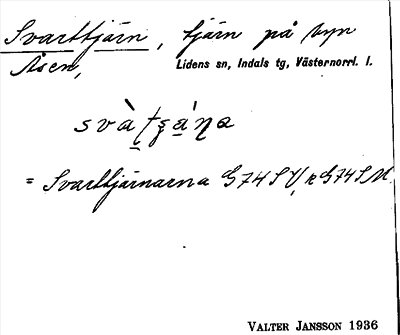 Svarttjärn, tjärn på byn
Åsen,
Lidens sn, Indals tg, Västernorrl. l.
= Svarttjärnarna G74SV, k G74SU
VALTER JANSSON 1936